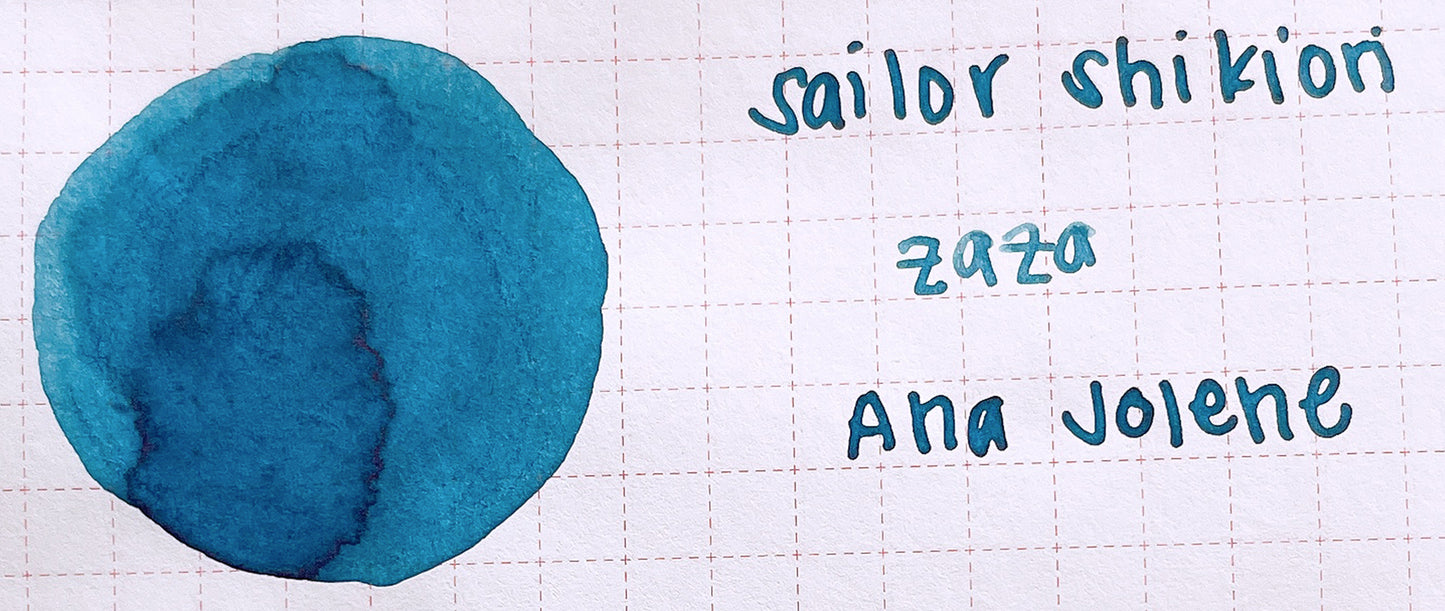 sailor shikiori
zaza
Ana Jolene